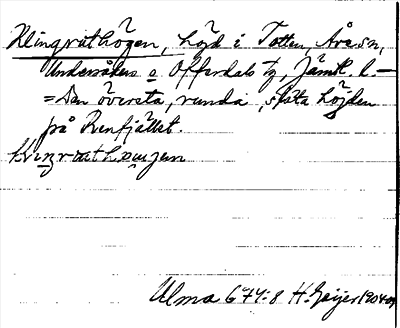 Klingråthögen, höjd i Totten, Åre sn,
Undersåkers o Offerdals tg, Jämtl. l. —
= Den översta, runda, släta höjden
på Renfjället.
Ulma 674:8 H. Geijer 1904-09